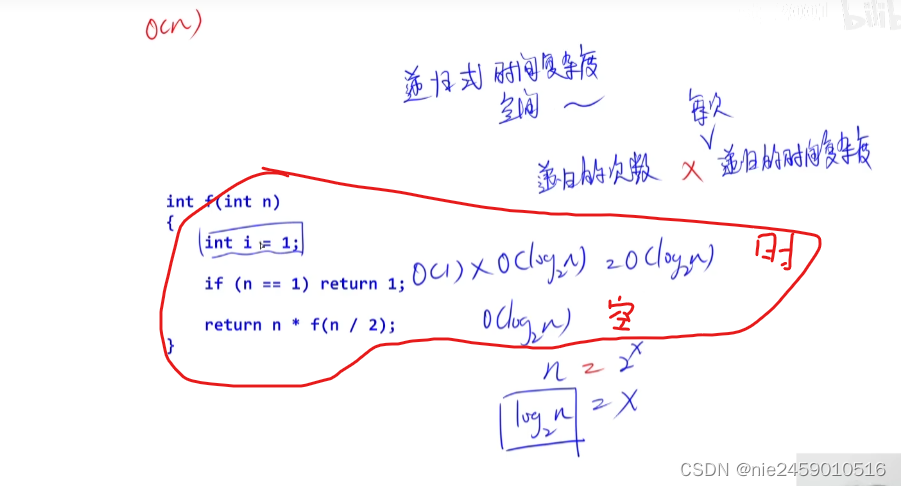 O(n)
bilib
递归式 时间复杂度
空间 ~
每次
递归的次数 × 递归的时间复杂度
int f(int n)
{
int i = 1;
if (n == 1) return 1;
O(1) × O(log₂n) = O(log₂n) 时
return n * f(n / 2);
O(log₂n) 空
}
n = 2ˣ
log₂n = x
CSDN @nie2459010516